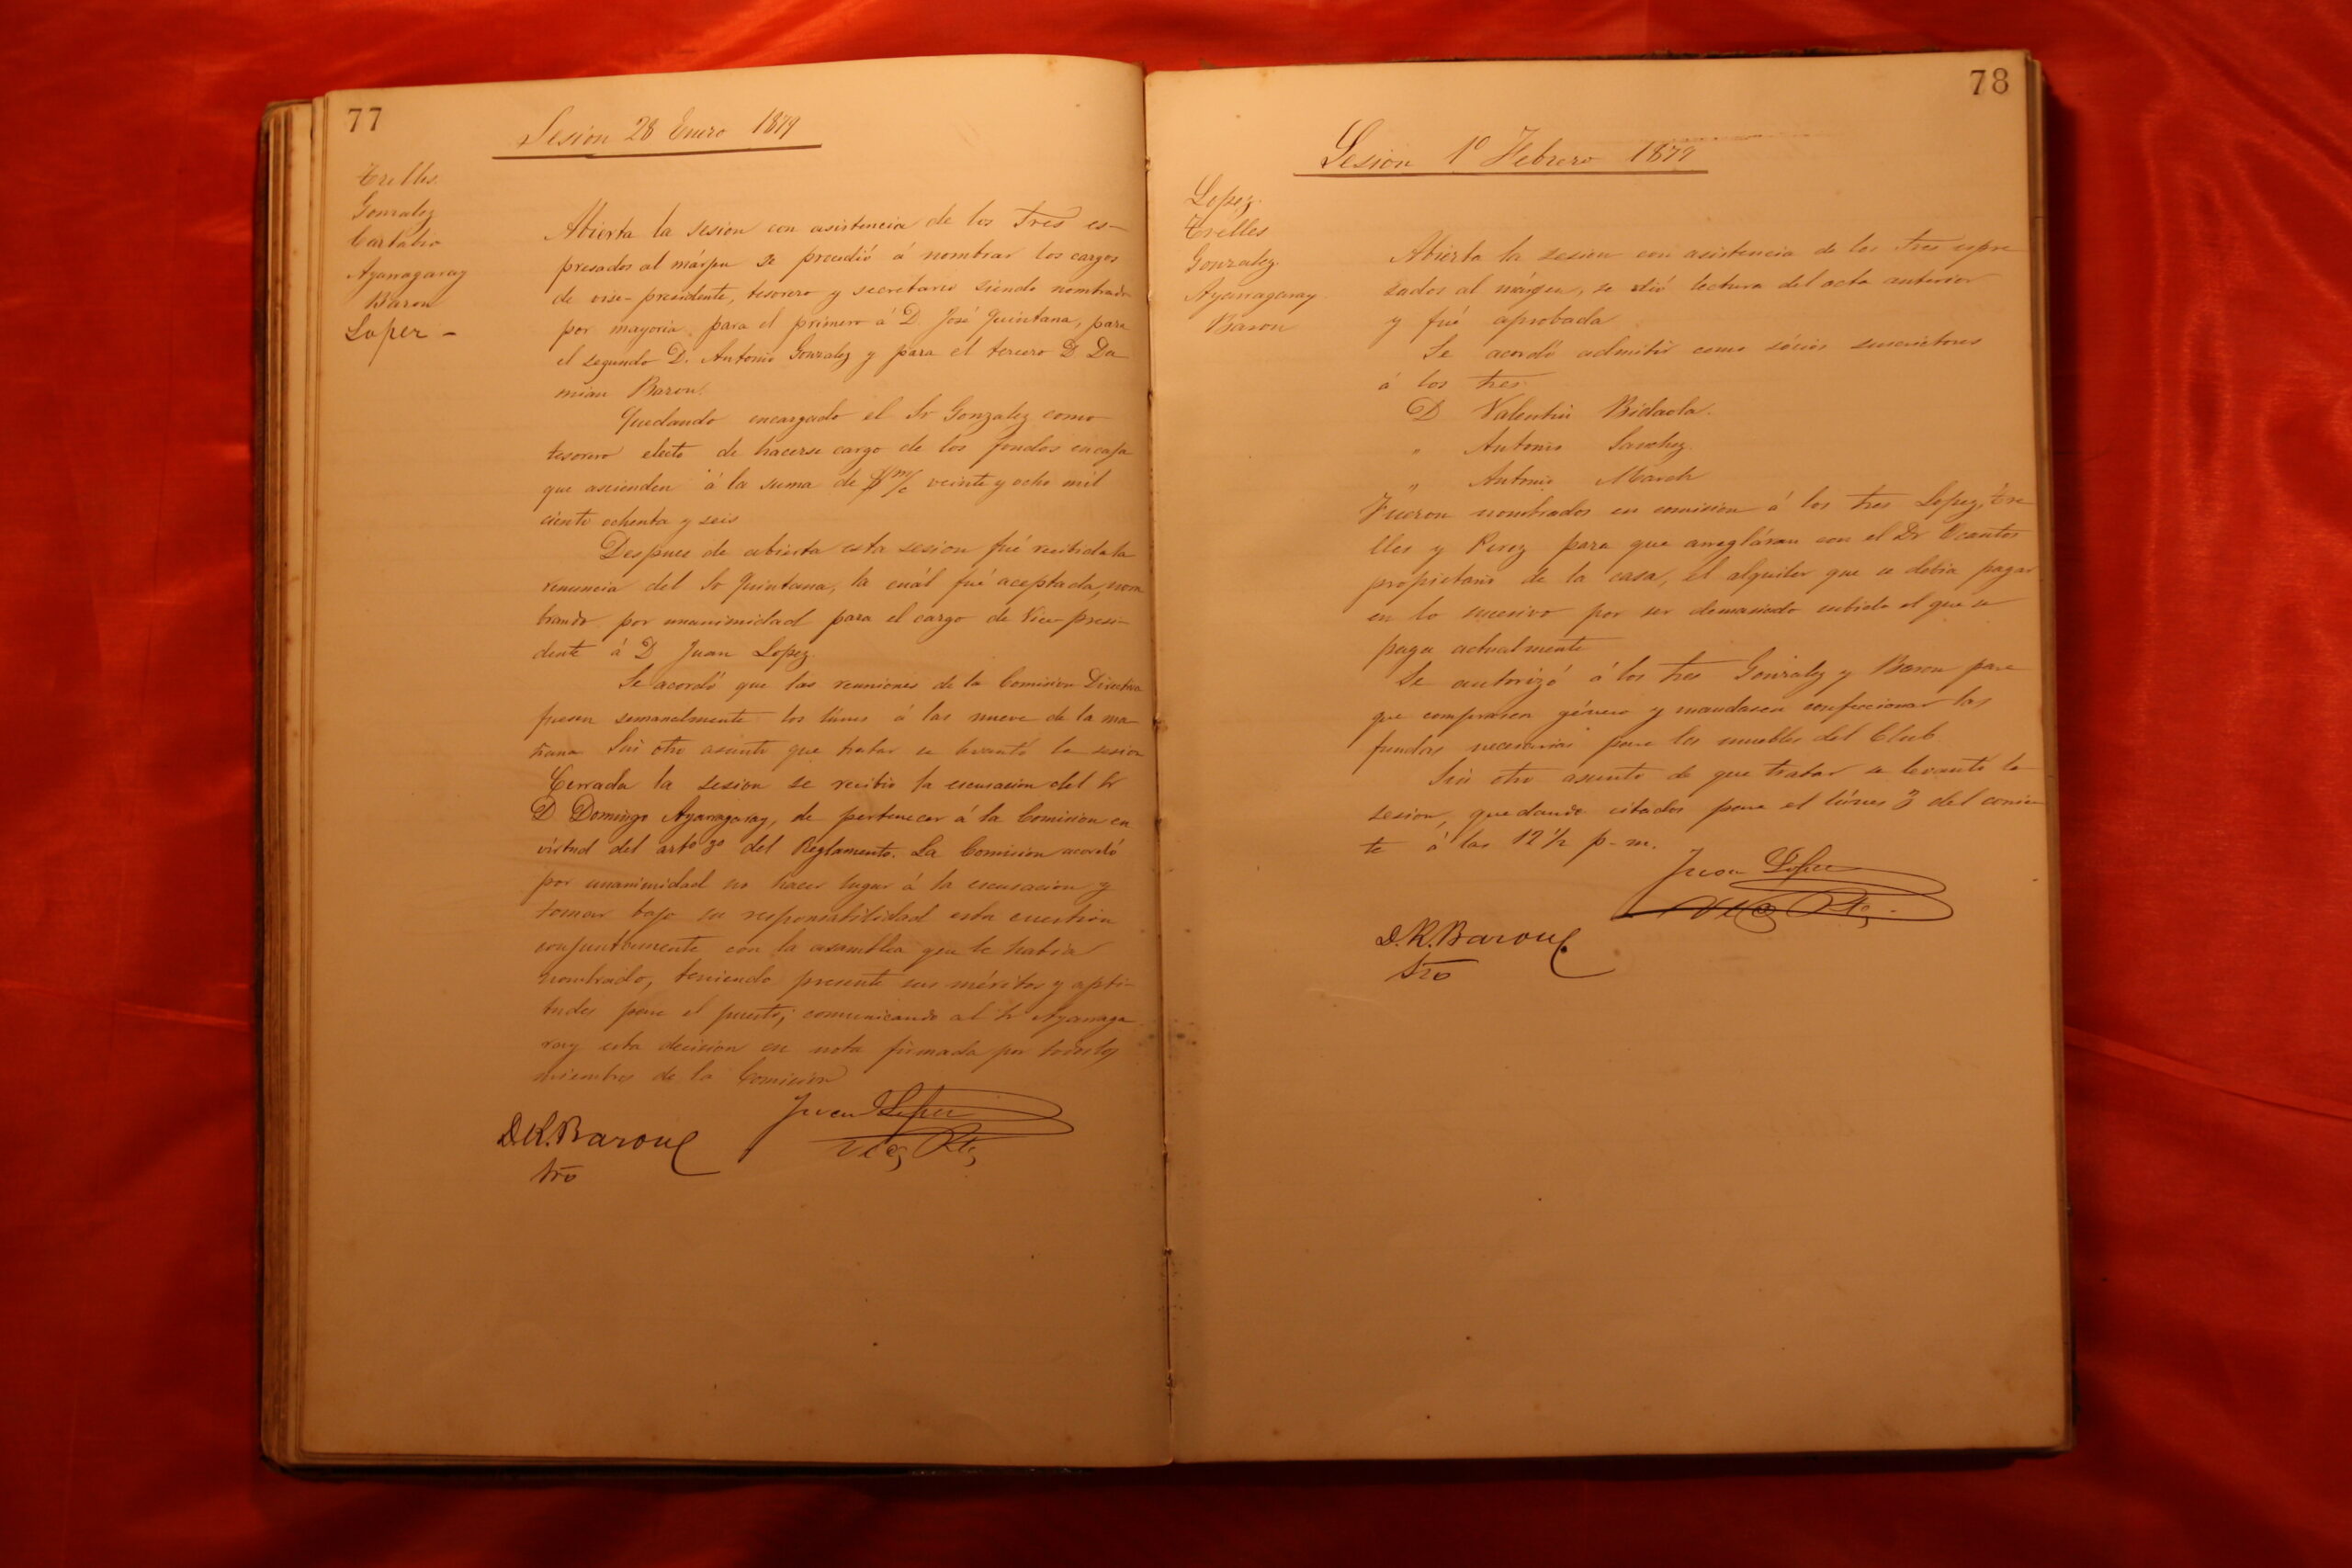 77
Sesion 28 Enero 1879
Trelles.
Gonzalez
Ayarragaray
Baron
Lopez –
Abierta la sesion con asistencia de los Sres es-
presados al márjen se procedió á nombrar los cargos
de vise-presidente, tesorero y secretario siendo nombrado
por mayoria, para el primero á D. José Quintana, para
el segundo D. Antonio Gonzalez y para el tercero D Da-
mian Baron.
Quedando encargado el Sr Gonzalez como
tesorero electo de hacerse cargo de los fondos en caja
que ascienden á la suma de $m/c veinte y ocho mil
ciento ochenta y seis
Despues de abierta esta sesion fué recibida la
renuncia del Sr Quintana, la cuál fué aceptada, nom
brando por unanimidad para el cargo de Vice-presi-
dente á D Juan Lopez.
Se acordó que las reuniones de la Comision Directiva
fuesen semanalmente los lúnes á las nueve de la ma-
ñana Sin otro asunto que tratar se levantó la sesion
Cerrada la sesion se recibió la escusacion del Sr
D Domingo Ayarragaray, de pertenecer á la Comision en
virtud del arto 3o del Reglamento. La Comision acordó
por unanimidad no hacer lugar á la escusacion y
tomar bajo su responsabilidad esta cuestion
conjuntamente con la asamblea que le habia
nombrado, teniendo presente sus méritos y apti-
tudes para el puesto; comunicando al Sr Ayarraga
ray esta decision en nota firmada por todos los
miembros de la Comision
Juan Lopez
Vice Pte
D.R. Baron
Srio
78
Sesion 1o Febrero 1879
Lopez.
Trelles
Gonzalez.
Ayarragaray.
Baron
Abierta la sesion con asistencia de los Sres espre
sados al márjen, se dió lectura del acta anterior
y fué aprobada
Se acordó admitir como sócios suscritores
á los Sres.
D Valentin Bidaola.
" Antonio Sanchez.
" Antonio March
Fueron nombrados en comision á los Sres Lopez, Tre
lles y Perez para que arregláran con el Dr Ocantos
propietario de la casa, el alquiler que se debia pagar
en lo sucesivo por ser demasiado subido el que se
paga actualmente
Se autorizó á los Sres Gonzalez y Baron para
que comprasen género y mandasen confeccionar las
fundas necesarias para los muebles del Club
Sin otro asunto de que tratar se levantó la
sesion, quedando citados para el lúnes 3 del corrien
te á las 12 1/2 p-m.
Juan Lopez
Vice Pte
D.R. Baron
Srio